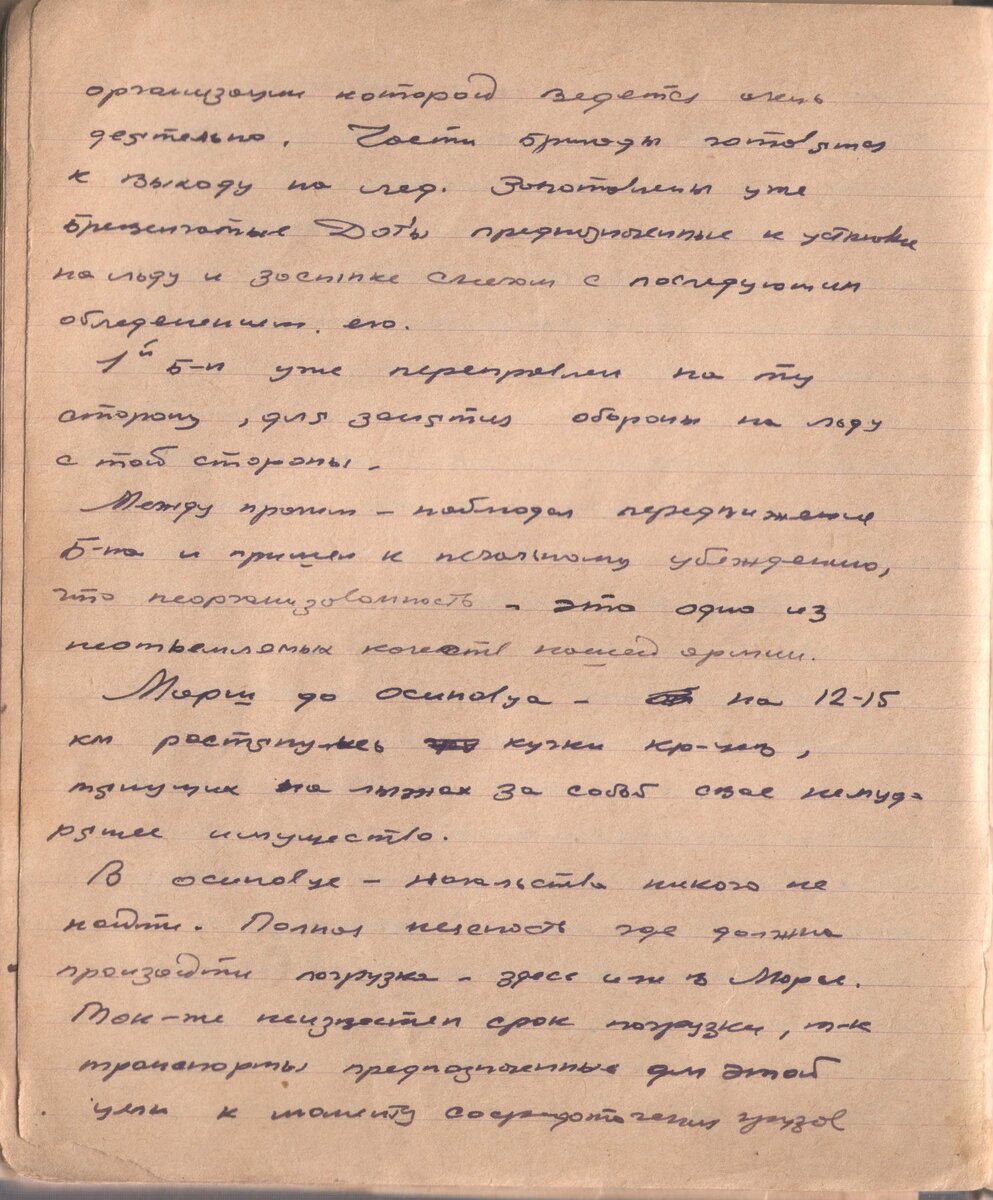 организации которой ведется очень
деятельно. Части бригады готовятся
к выходу на лед. Заготовлены уже
брезентатые Дот'ы предназначенные к устновке
на льду и засыпке снегом с последующим
обледенением его.
1й Б-н уже переправлен на ту
сторону, для занятия обороны на льду
с той стороны.
Между прочим – наблюдал передвижение
Б-на и пришел к печальному убеждению,
что неорганизованность – это одно из
неотъемлемых качеств нашей армии.
Марш до Осиновца – на 12-15
км растянулись кучки кр-цев,
тянущих на лыжах за собой свое немуд-
рящее имущество.
В Осиновце – начальства никого не
найти. Полная неясность где должна
произойти погрузка – здесь или в Морье.
Так-же неизвестен срок погрузки, т-к
транспорты предназначенные для этой
цели к моменту сосредоточения грузов